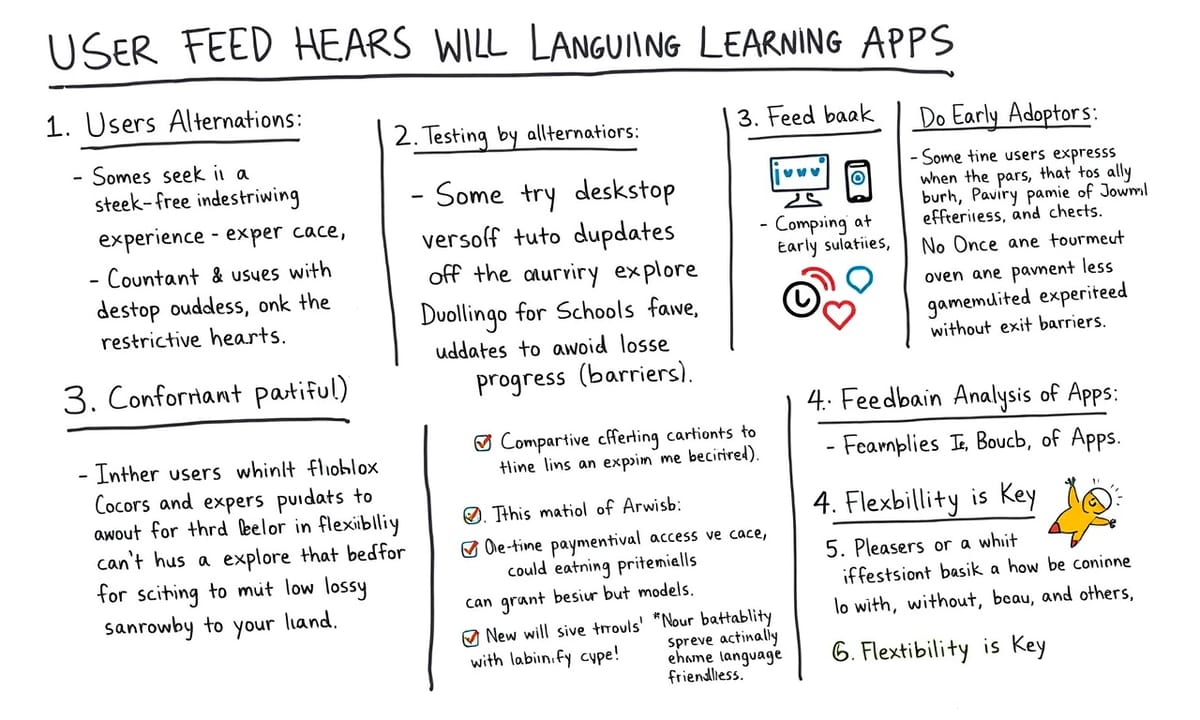 USER FEED HEARS WILL LANGUIING LEARNING APPS
1. Users Alternations:
- Somes seek ii a
steek-free indestriwing
experience - exper cace,
- Countant & usues with
destop ouddess, onk the
restrictive hearts.
2. Testing by allternatiors:
- Some try deskstop
versoff tuto dupdates
off the aurviry explore
Duollingo for Schools fawe,
uddates to awoid losse
progress (barriers).
3. Feed baak
- Compiing at
Early sulatiies,
Do Early Adoptors:
- Some tine users expresss
when the pars, that tos ally
burh, Paviry pamie of Jowmil
effteriless, and chects.
No Once ane tourmeut
oven ane pavment less
gamemulited experiteed
without exit barriers.
3. Conforriant patiful)
- Inther users whinlt flioblox
Cocors and expers puidats to
awout for thrd leelor in flexiiblliy
can't hus a explore that bedfor
for sciting to mut low lossy
sanrowby to your liand.
Compartive cfferting cartionts to
tline lins an expim me becitired).
. Tthis matiol of Arwisb:
Oie-tine paymentival access ve cace,
could eatning priteniells
can grant besiur but models.
New will sive trrouls'
with labiinify cype!
"Nour battablity
spreve actinally
ehame language
friendlless.
4. Feedbain Analysis of Apps:
- Fcamplies Ie, Boucb, of Apps.
4. Flexbillity is Key
5. Pleasers or a whiit
iffestsiont basik a how be coninne
lo with, without, beau, and others,
6. Flextibility is Key